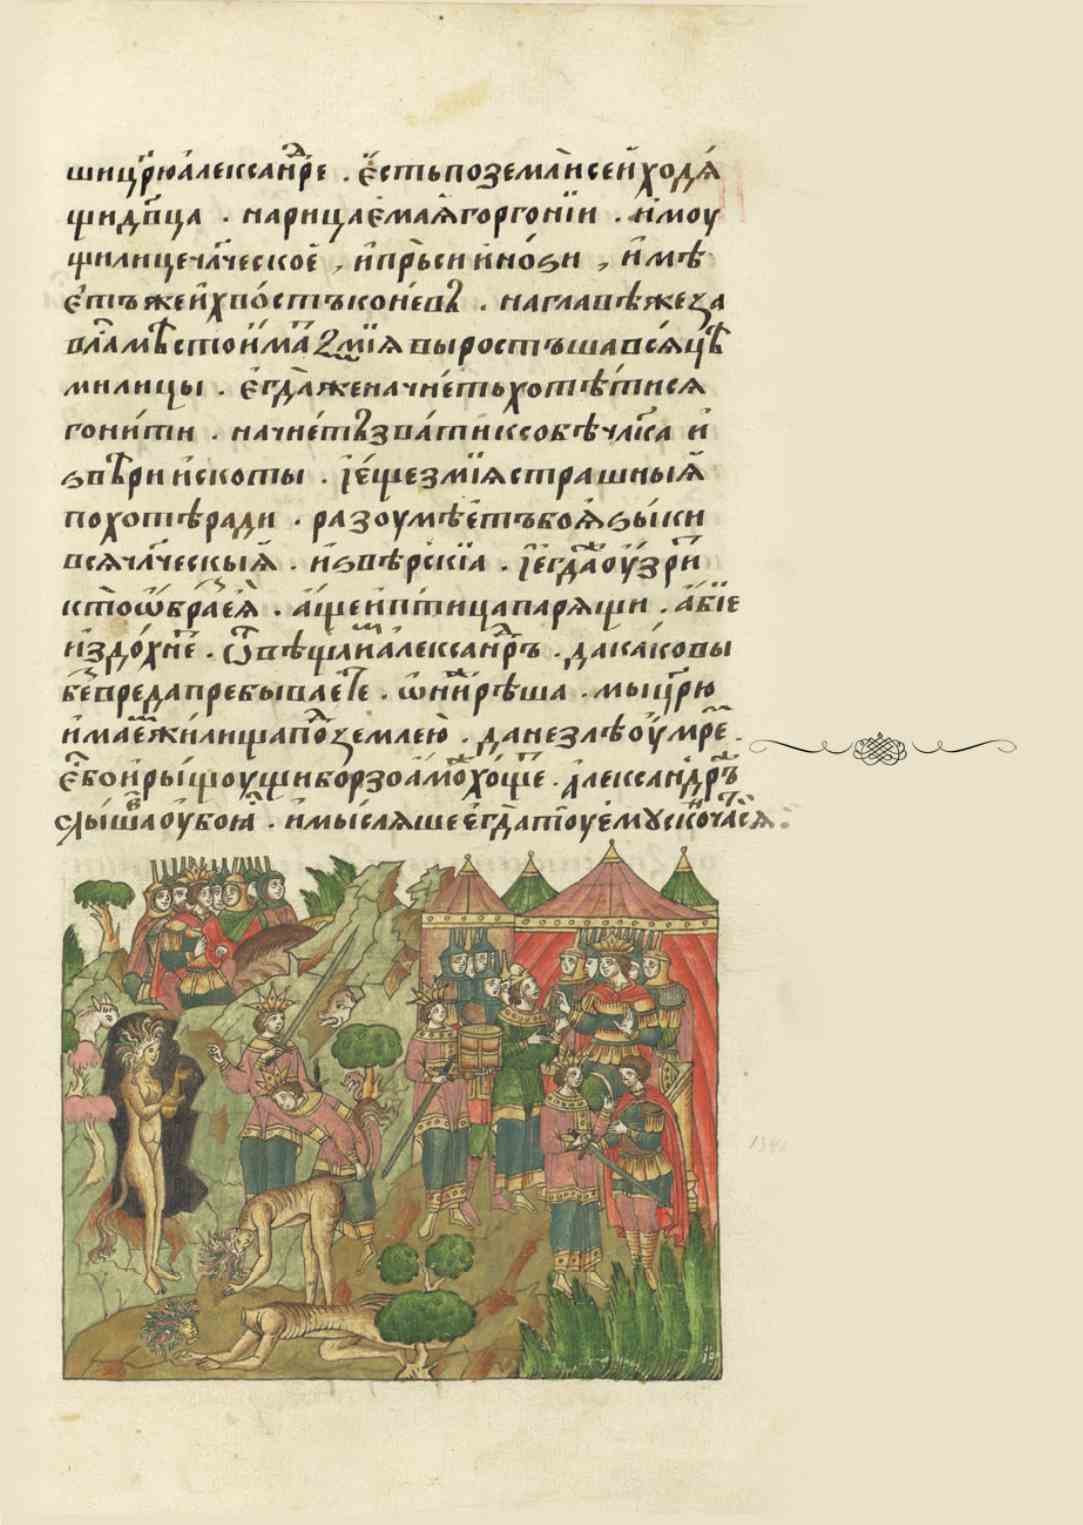 шиц҃рюалеѯан҃ре . є́стьпоземлѝсейходѧ́
щидв҃ца . нарицаемаѧ́горгонїи . и́моу
щилицечл҃ческоє , и́пр̀ьсиино́ѕи , и́мѣ
етъжеи́хво́стъконе́въ . наглавѣжеза
вла́мѣстои́ма꙽змїѧвыростъшавсѧцѣ
милицы . є҆гда̀женачне́тьхотѣ́тисѧ
гони́ти . начне́тъзва́тиксобѣчл҃ка и́
ѕвѣрии́скоты . і҆е́щезмїѧстрашныѧ́
похотѣради . разоумѣ́етъбоѧ҆ѕы́ки
всѧчл҃ческыѧ̀ . и҆ѕвѣрскїа . і҆егда̀оу҆зри
ктоѡбра́еѧ̀ . а́щеипти́цапарѧщи . а́бїе
издо́хне . ѿвѣщалиалександръ . дака́ковы
бе́вредапребываете . ѡни́рѣша . мыц҃рю
и́маежили́щапо́земле́ю . данезлѣоу҆мре .
є҆́боиры́щоущиборзоа҆мо́хоще . а҆лександръ
слы́шаоубоѧ . и҆мыслѧшеє҆гда̀птоуе҆мꙋскочасѧ .